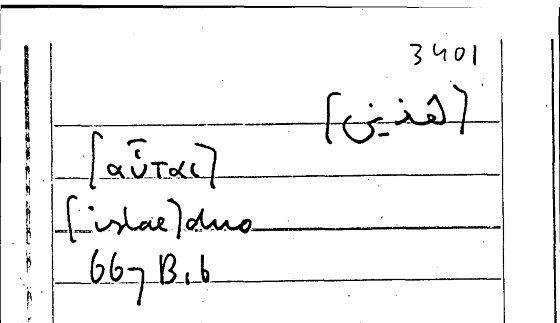 3401
[هذين]
[αὗται]
[istae] duo
667 B, b